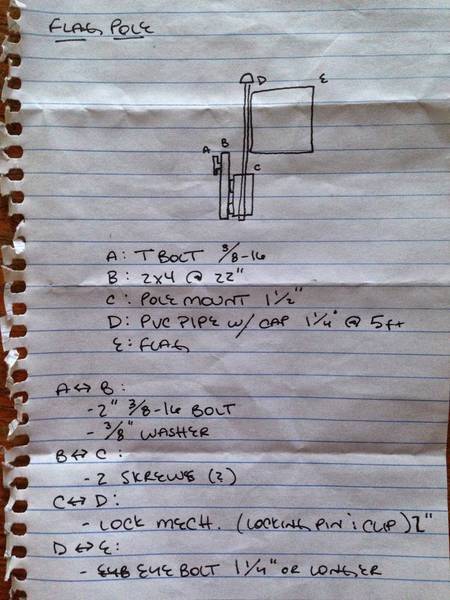 FLAG POLE
D
E
B
A
C
A: T BOLT 3/8-16
B: 2x4 @ 22"
C: POLE MOUNT 1 1/2"
D: PVC PIPE W/ CAP 1 1/4" @ 5ft
E: FLAG
A↔B:
- 2" 3/8-16 BOLT
- 3/8" WASHER
B↔C:
- 2 SKREWS (2)
C↔D:
- LOCK MECH. (LOCKING PIN & CLIP) 2"
D↔E:
- EYE BOLT 1 1/4" OR LONGER